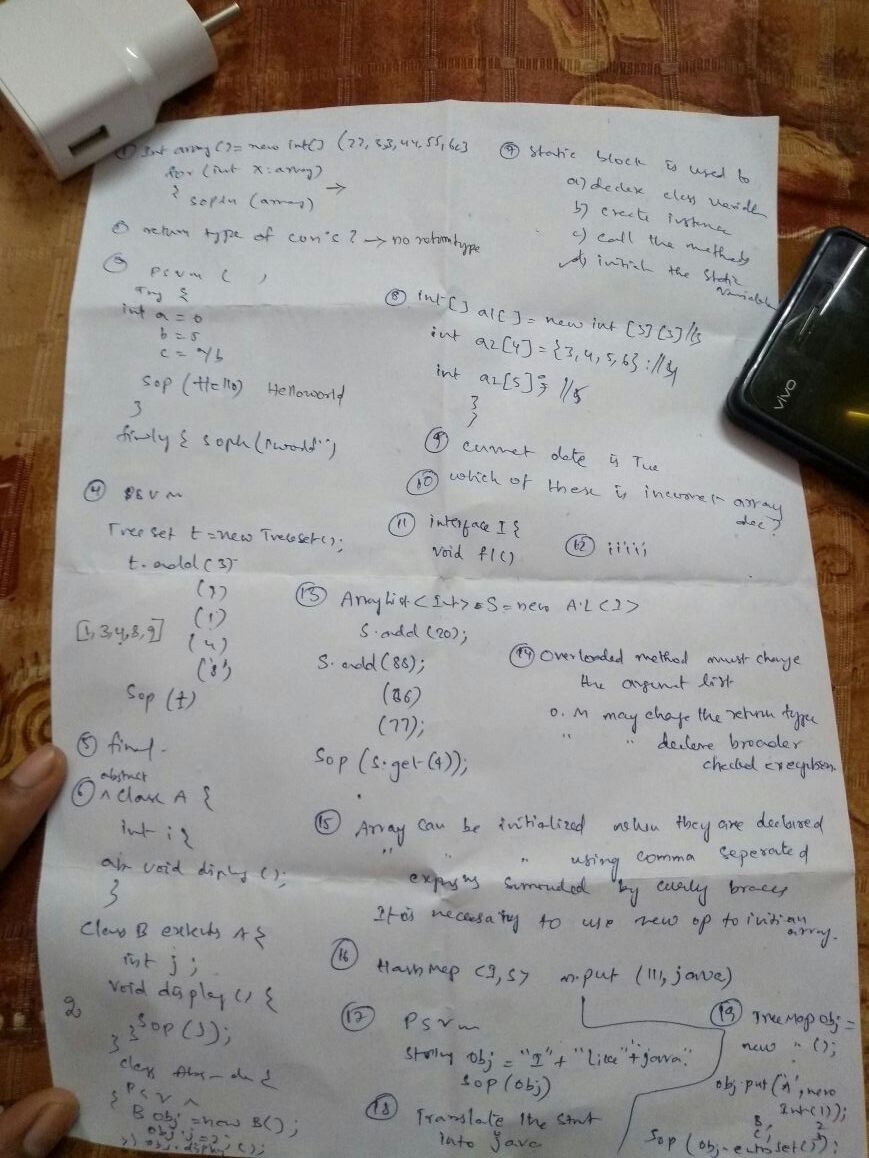 ① Int array()= new int() (22, 33, 44, 55, 66}
for (int x: array)
{ sopln (array) →
② return type of con's ? → no return type
③ psvm ( )
Try {
int a = 0
b = 5
c = a/b
Sop (Hello) Helloworld
}
finly { soph ("world")
④ psvm
Tree set t = new Treeset();
t. add (3)
(9)
(1)
[1,3,4,8,9]
(4)
(8)
Sop (t)
⑤ final.
abstract
⑥ ^ class A {
int i {
ab void diply ();
}
Class B extects A {
int j ;
void display () {
2
Sop (J);
} }
class Abs-de {
{ P S V M
B obj = new B();
obj.j = 2;
obj.disply ();
⑦ Static block is used to
a) declere class variable
b) create instance
c) call the methods
d) initich the Static
variable
⑧ int[] a1[] = new int [3][3] //5
int a2[4] = {3,4,5,6}; //4
int a2[5]; //5
}
}
⑨ currnet date is Tue
⑩ which of these is incorrect array
dec?
⑪ interface I {
void f1()
⑫ iiiii
⑬ ArrayList <Int> S = new A.L <I>
S.add (20);
S.add (88);
(86)
(77);
Sop (S.get (4));
⑭ Overloaded method must change
the argunt list
O. M may chage the return type
" " declere broader
checked exception.
⑮ Array can be initialized when they are declared
" " " using comma seperated
exprsns surrounded by curly braces
It is necessaity to use new op to initi an
array.
⑯ HashMap <I,S> m.put (111, java)
⑰ P S V M
String obj = "I" + "like" + java"
Sop (obj)
⑱ Translate the stmt
into java
⑲ Tree Map obj =
new " ();
obj.put ('A', new
Int(1));
B, 2
C, 3
Sop (obj.entroset());
vivo